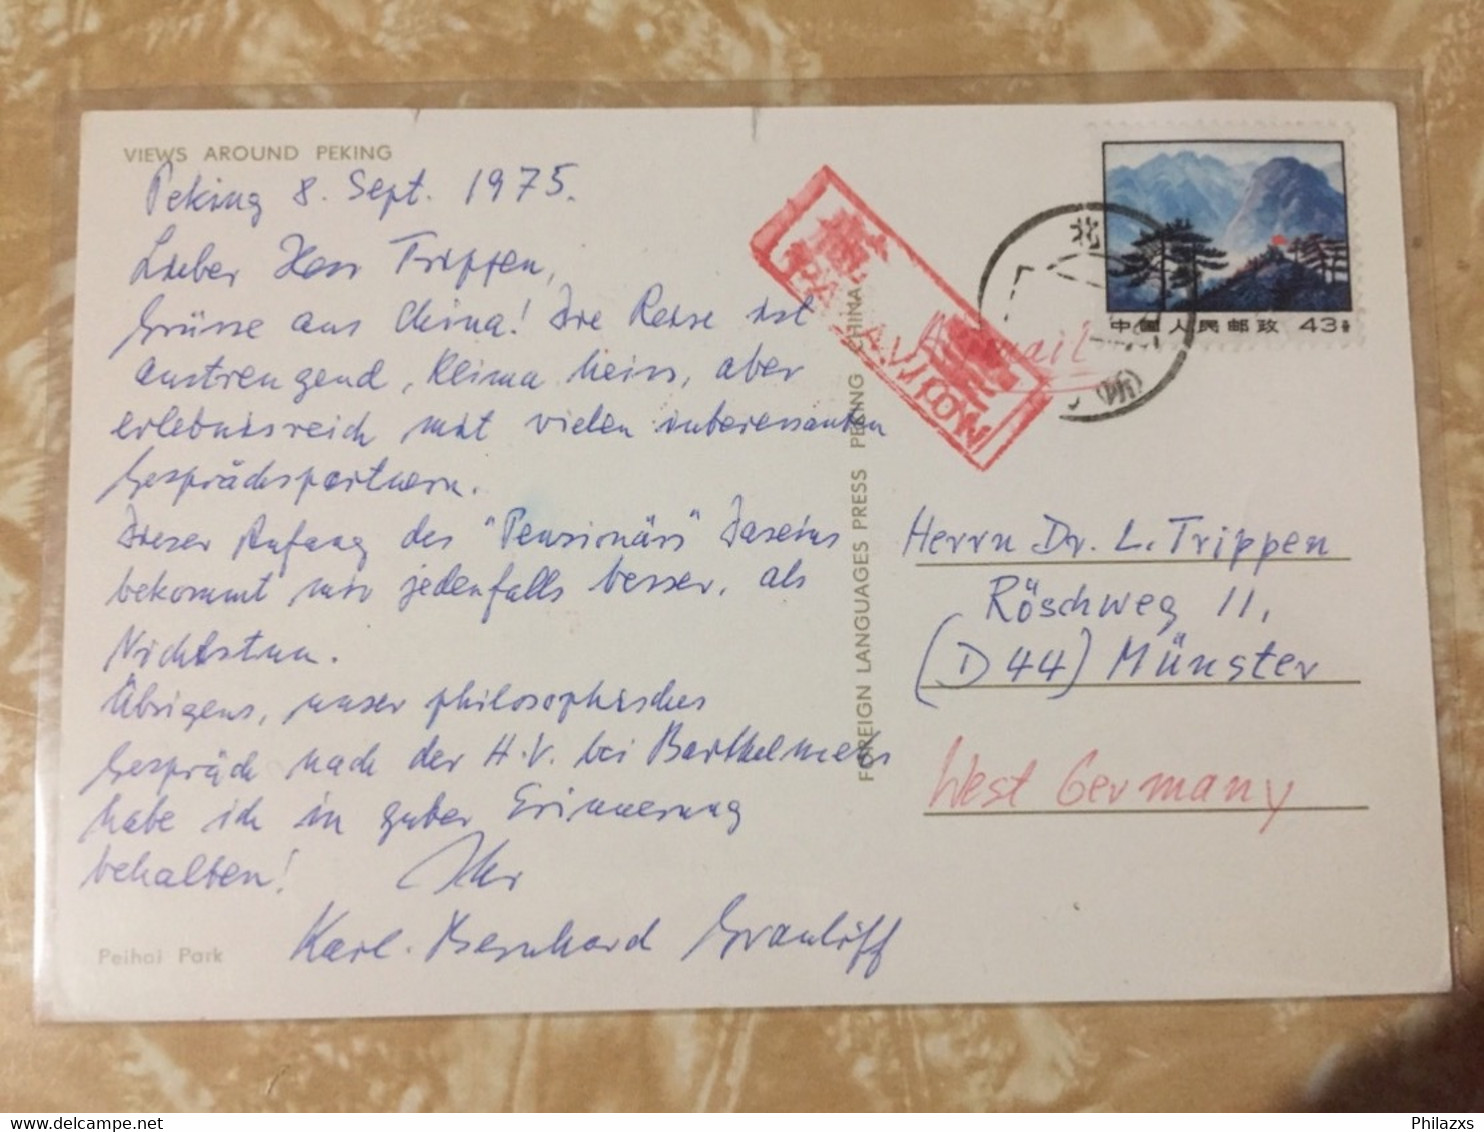 VIEWS AROUND PEKING
Peking 8. Sept. 1975.
Lieber Herr Trippen,
Grüsse aus China! Die Reise ist
anstrengend, Klima heiss, aber
erlebnisreich mit vielen interessanten
Gesprächspartnern.
Dieser Anfang des "Pensionärs" Daseins
bekommt mir jedenfalls besser, als
Nichtstun.
Übrigens, unser philosophisches
Gespräch nach der H.V. bei Barthelmess
habe ich in guter Erinnerung
behalten! Ihr
Karl-Bernhard Grautoff
Peihai Park
FOREIGN LANGUAGES PRESS PEKING CHINA
PAR AVION
Airmail
北
中国人民邮政 43分
Herrn Dr. L. Trippen
Röschweg 11,
(D 44) Münster
West Germany
Philazxs